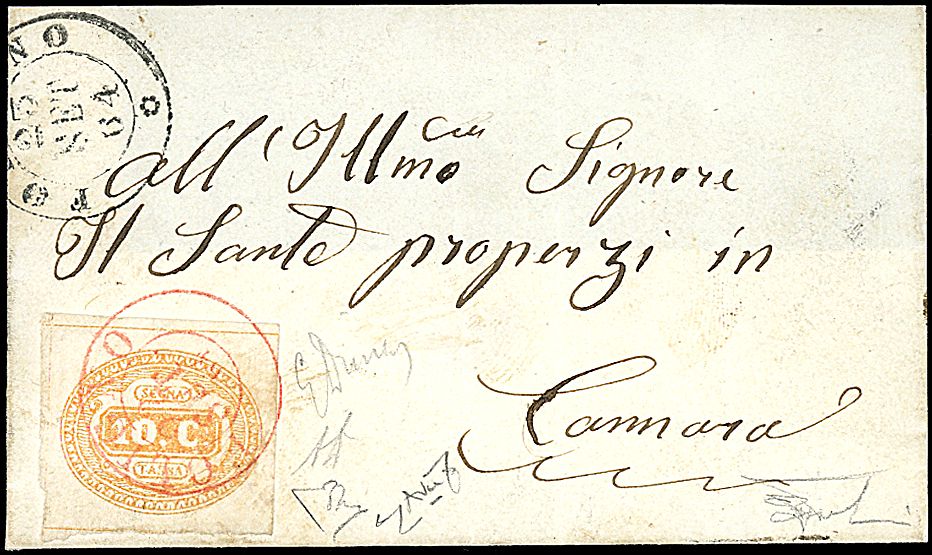 NO
23
SET
64
FO
All'Illmo Signore
Il Sante properzi in
Cannara
SEGNA
10. C.
TASSA